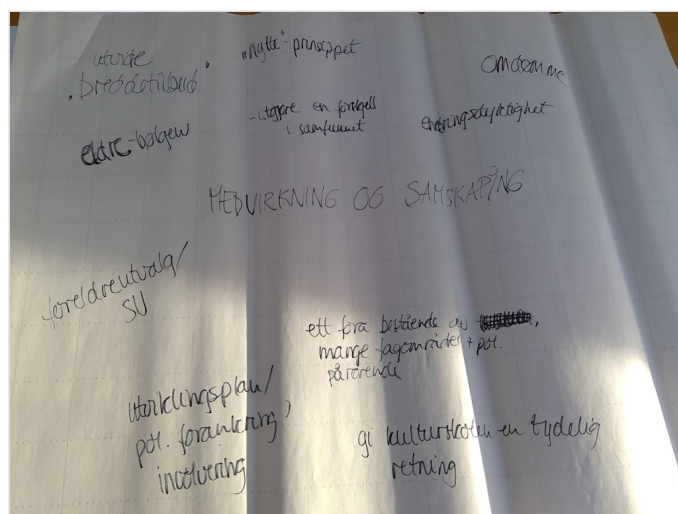 utvide
"breddetilbud"
"nytte"-prinsippet
omdømme
eldre-bølgen
-utgjøre en forskjell
i samfunnet
endringsdyktighet
MEDVIRKNING OG SAMSKAPING
foreldreutvalg/
SU
ett fora bestående av
mange fagområder + pol.
pårørende
utviklingsplan/
pol. forankring/
involvering
gi kulturskolen en tydelig
retning